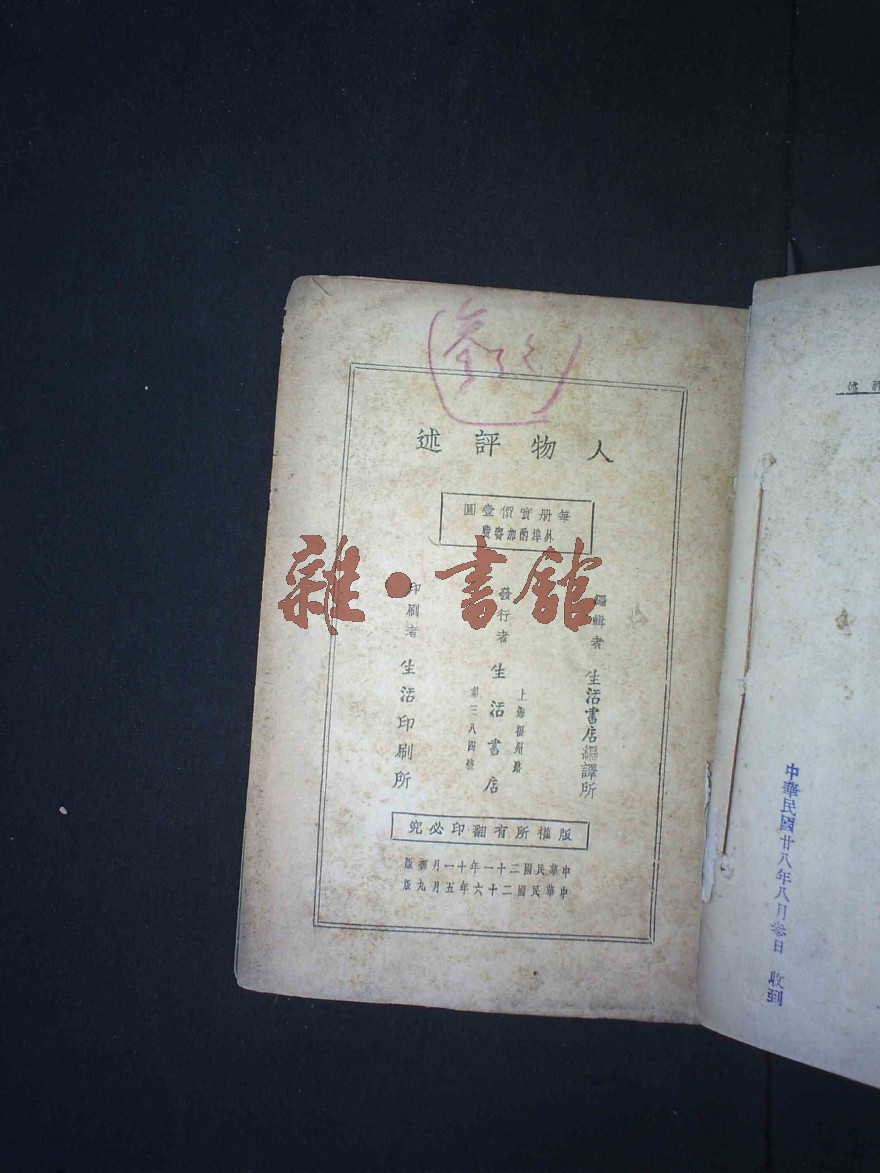 人物評述
每册實價壹圓
外埠酌加寄費
編輯者 生活書店編譯所
發行者 生活書店
上海福州路
第三八四號
印刷者 生活印刷所
版權所有翻印必究
中華民國二十一年十一月初版
中華民國二十六年五月九版
雜·書館
中華民國廿八年八月叁日 收到